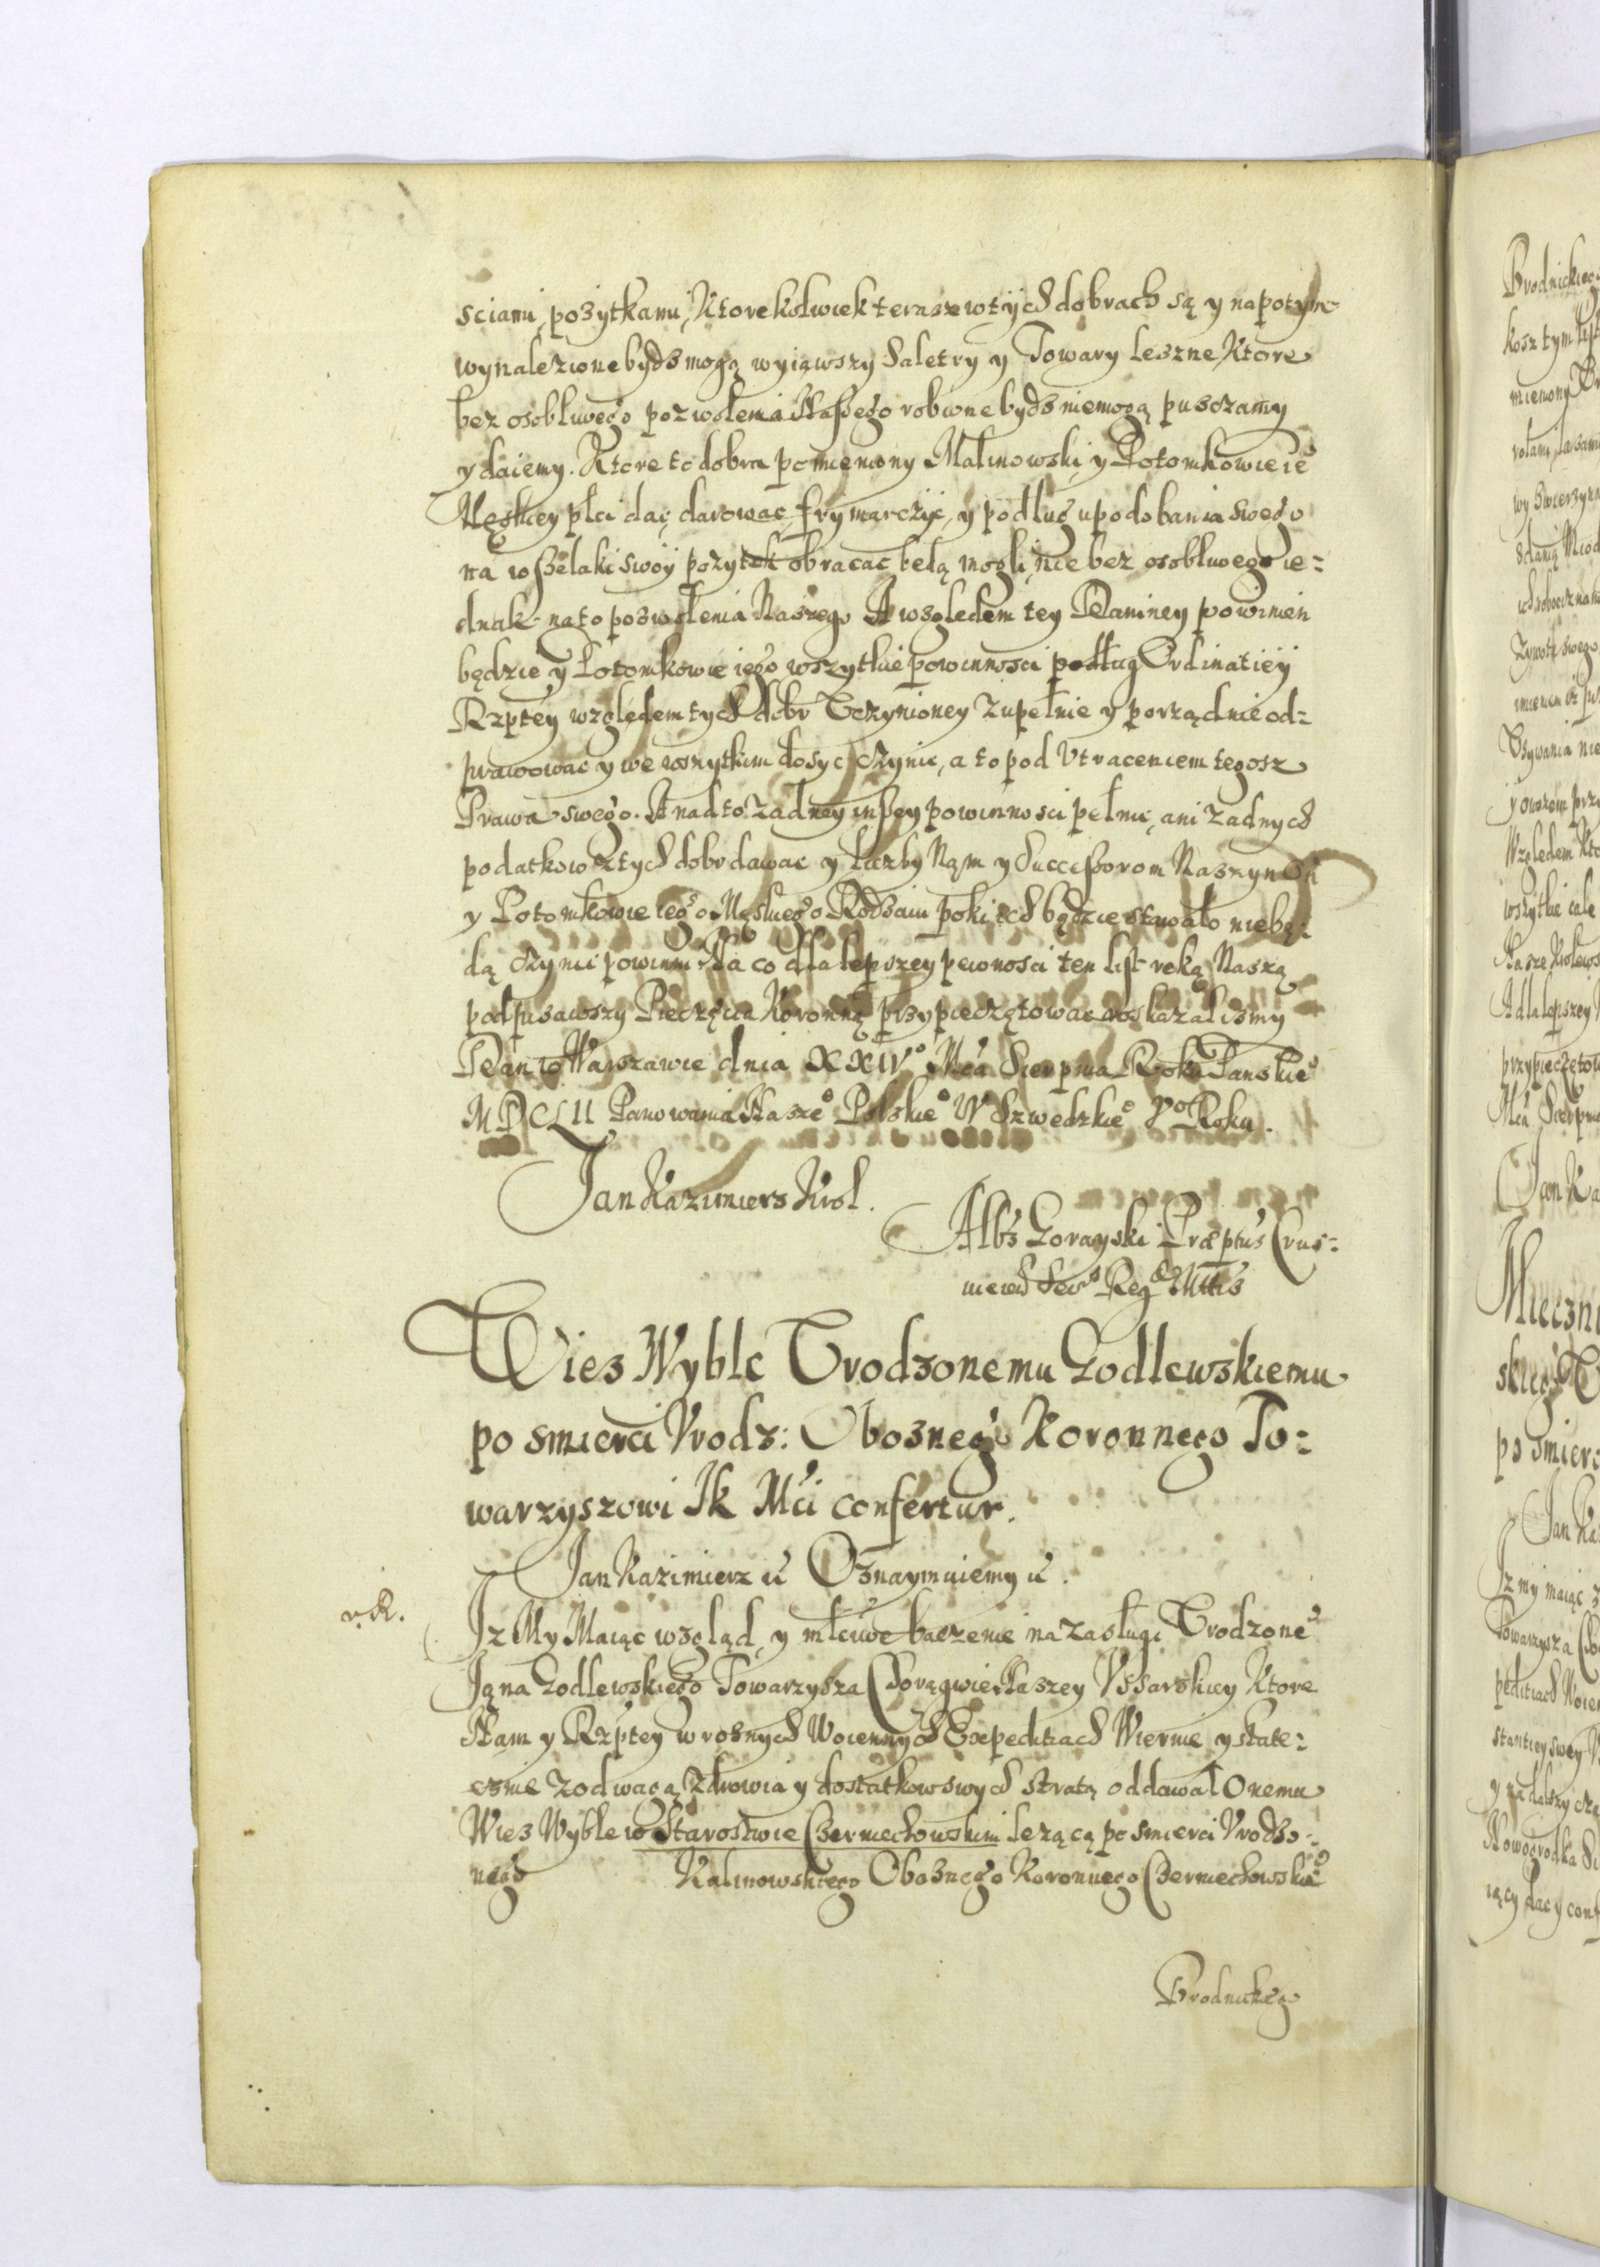 sciami, pożytkami, Ktorekolwiek teraz w tych dobrach są y napotym
wynalezione bydz mogą wyiąwszy Saletry y Towary leszne Ktore
bez osobliwego pozwolenia Naszego robione bydz niemogą puszczamy
y daiemy. Ktore to dobra pomieniony Malinowski y Potomkowie ie°
Męskiey płci dać, darować, frymarczyć, y podług upodobania swego
na wszelaki swóÿ pożytek obracac będą mogli, nie bez osobliwego ie=
dnak na to pozwolenia Naszego A względem tey Daniney powinien
będzie y Potomkowie iego wszytkie powinnosci podług Ordinatiÿ
Rzptey względem tych dobr Uczynioney zupełnie y porządnie od=
prawowac y we wszytkim dosyc czynic, a to pod Utraceniem tegosz
Prawa swego. A nad to żadney inszey powinnosci pełnic, ani żadnych
podatkow z tych dobr dawac y liczby Nąm y Successorom Naszym On
y Potomkowie iego Męskiego Rodzaiu poki ich będzie stawało niebę=
dą czynic powinni. Na co dla lepszey pewnosci ten list ręką Naszą
podpisawszy Pieczęcia Koronną przypieczętowac roskazalismy
Dan w Warszawie dnia XXIV° Mca Sierpnia Roku Panskie°
MDCLII Panowania Nasze° Polskie° IV Szwedzkie° V° Roku.
Jan Kazimierz Krol.
Albs Gorayski Præptus Crus=
uicen Secr Reg Mttis
Wies Wyble Urodzonemu Godlewskiemu
po smierci Urodz: Obozneg° Koronnego To=
warzyszowi Jk Mci confertur.
Jan Kazimierz &c Oznaymuiemy &c.
v. R.
Jz My Maiąc wzgląd, y mściwe baczenie na zasługi Urodzone°
Jąna Godlewskiego Towarzysza Chorągwie Naszey Ussarskiey Ktore
Nam y Rzptey w roznych Woiennych Expeditiach Wiernie y state=
cznie z odwagą Zdrowia y dostatkow swych stratą oddawał Onemu
Wies Wyble w Starostwie Czerniechowskim leżącą po smierci Urodzo=
nego Kalinowskiego Oboznego Koronnego Czerniechowskie°
Brodnickieg°